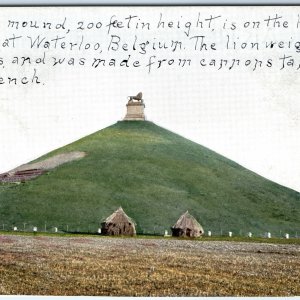 mound, 200 feet in height, is on the
at Waterloo, Belgium. The lion weig
and was made from cannons ta
ench.